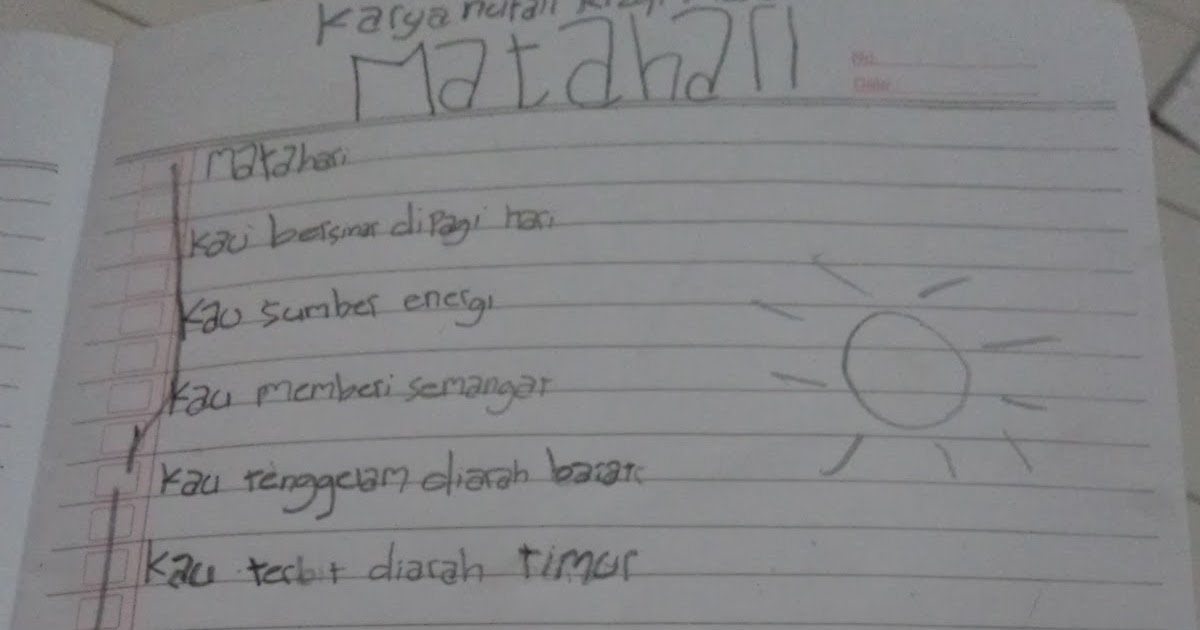 Karya
Matahari
No:
Date:
Matahari
Kau bersinar dipagi hari
Kau sumber energi
Kau memberi semangat
Kau tenggelam diarah barat
Kau terbit diarah timur